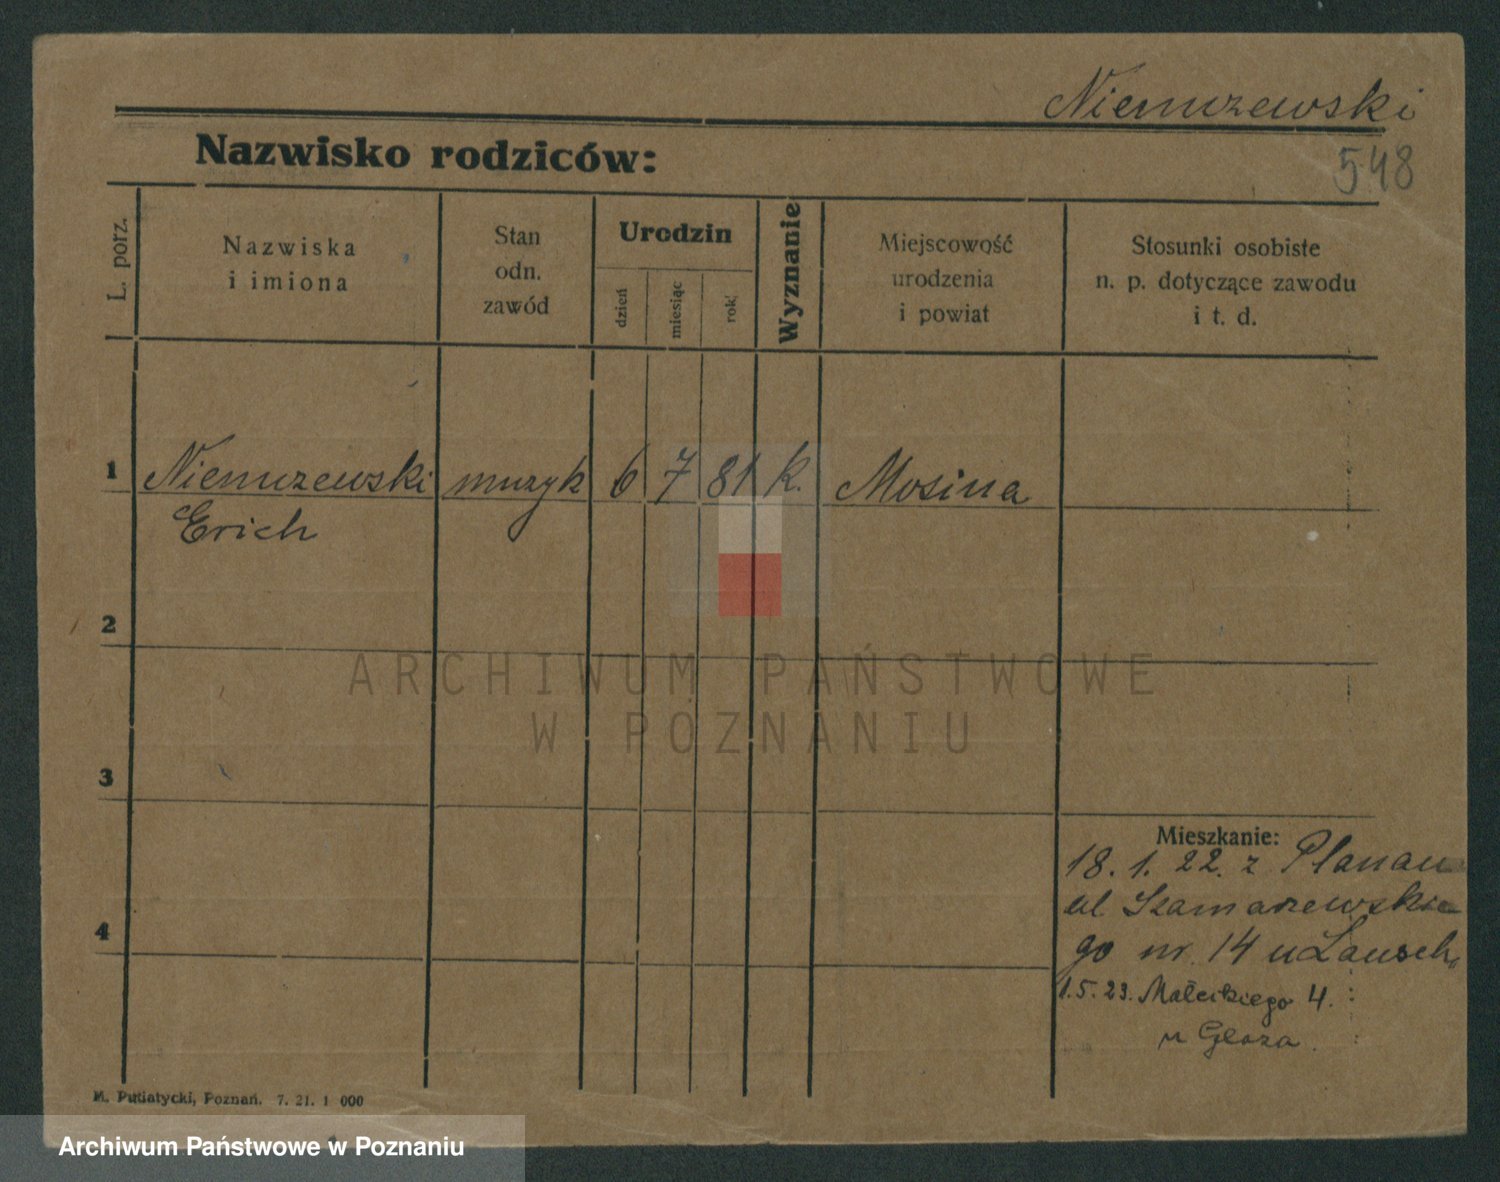 Niemczewski
548
Nazwisko rodziców:
L. porz.
Nazwiska
i imiona
Stan
odn.
zawód
Urodzin
dzień
miesiąc
rok
Wyznanie
Miejscowość
urodzenia
i powiat
Stosunki osobiste
n. p. dotyczące zawodu
i t. d.
1 Niemczewski muzyk 6 7 81 k. Mosina
Erich
2
ARCHIWUM PAŃSTWOWE
W POZNANIU
3
Mieszkanie:
18. 1. 22. z
ul Szamarzewskie
4
go nr. 14 u Lausch
1. 5. 23. Małeckiego 4.
u Gloza.
M. Putiatycki, Poznań. 7. 21. 1 000
Archiwum Państwowe w Poznaniu